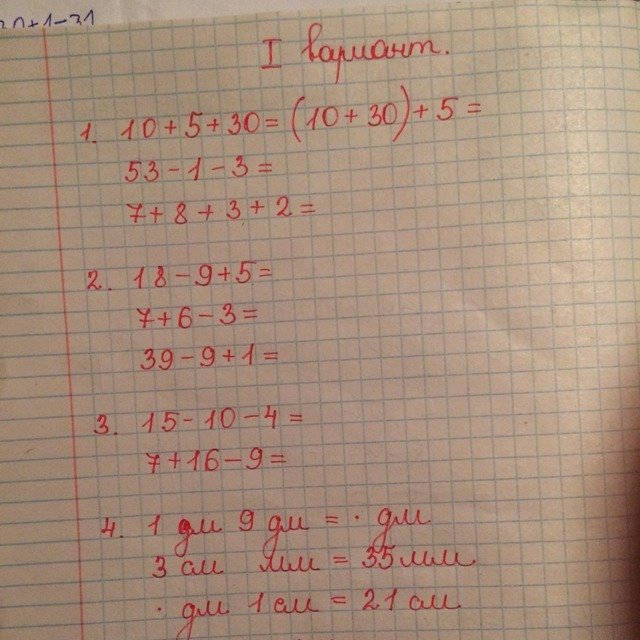 30+1-31
I вариант.
1. 10+5+30=(10+30)+5=
53-1-3=
7+8+3+2=
2. 18-9+5=
7+6-3=
39-9+1=
3. 15-10-4=
7+16-9=
4. 1 дм 9 дм = . дм
3 см мм = 35 мм
. дм 1 см = 21 см